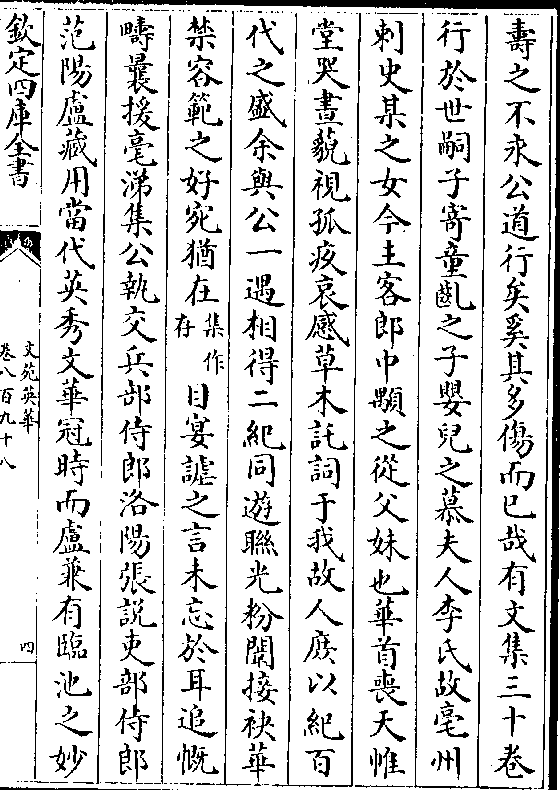 壽之不永公道行矣奚其多傷而已哉有文集三十卷
行於世嗣子寄童齓之子嬰兒之慕夫人李氏故亳州
刺史某之女今主客郎中顒之從父妹也華首喪天帷
堂哭晝藐視孤疚哀感草木託詞于我故人庶以紀百
代之盛余與公一遇相得二紀同遊聯光粉闈接袂華
禁容範之好宛猶在集作存目宴謔之言未忘於耳追慨
疇曩援毫涕集公執交兵部侍郎洛陽張說吏部侍郎
范陽盧藏用當代英秀文華冠時而盧兼有臨池之妙
欽定四庫全書
文苑英華
卷八百九十八
四